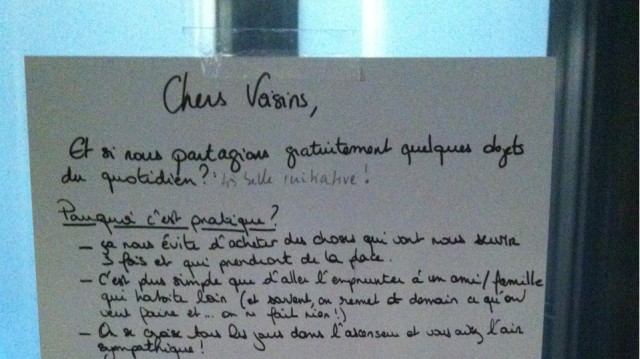 Chers Voisins,
Et si nous partagions gratuitement quelques objets
du quotidien? très belle initiative !
Pourquoi c'est pratique ?
- ça nous évite d'acheter des choses qui vont nous servir
3 fois et qui prendront de la place.
- C'est plus simple que d'aller l'emprunter à un ami/famille
qui habite loin (et souvent, on remet à demain ce qu'on
veut faire et... on ne fait rien!)
- On se croise tous les jours dans l'ascenseur et vous avez l'air
sympathique!